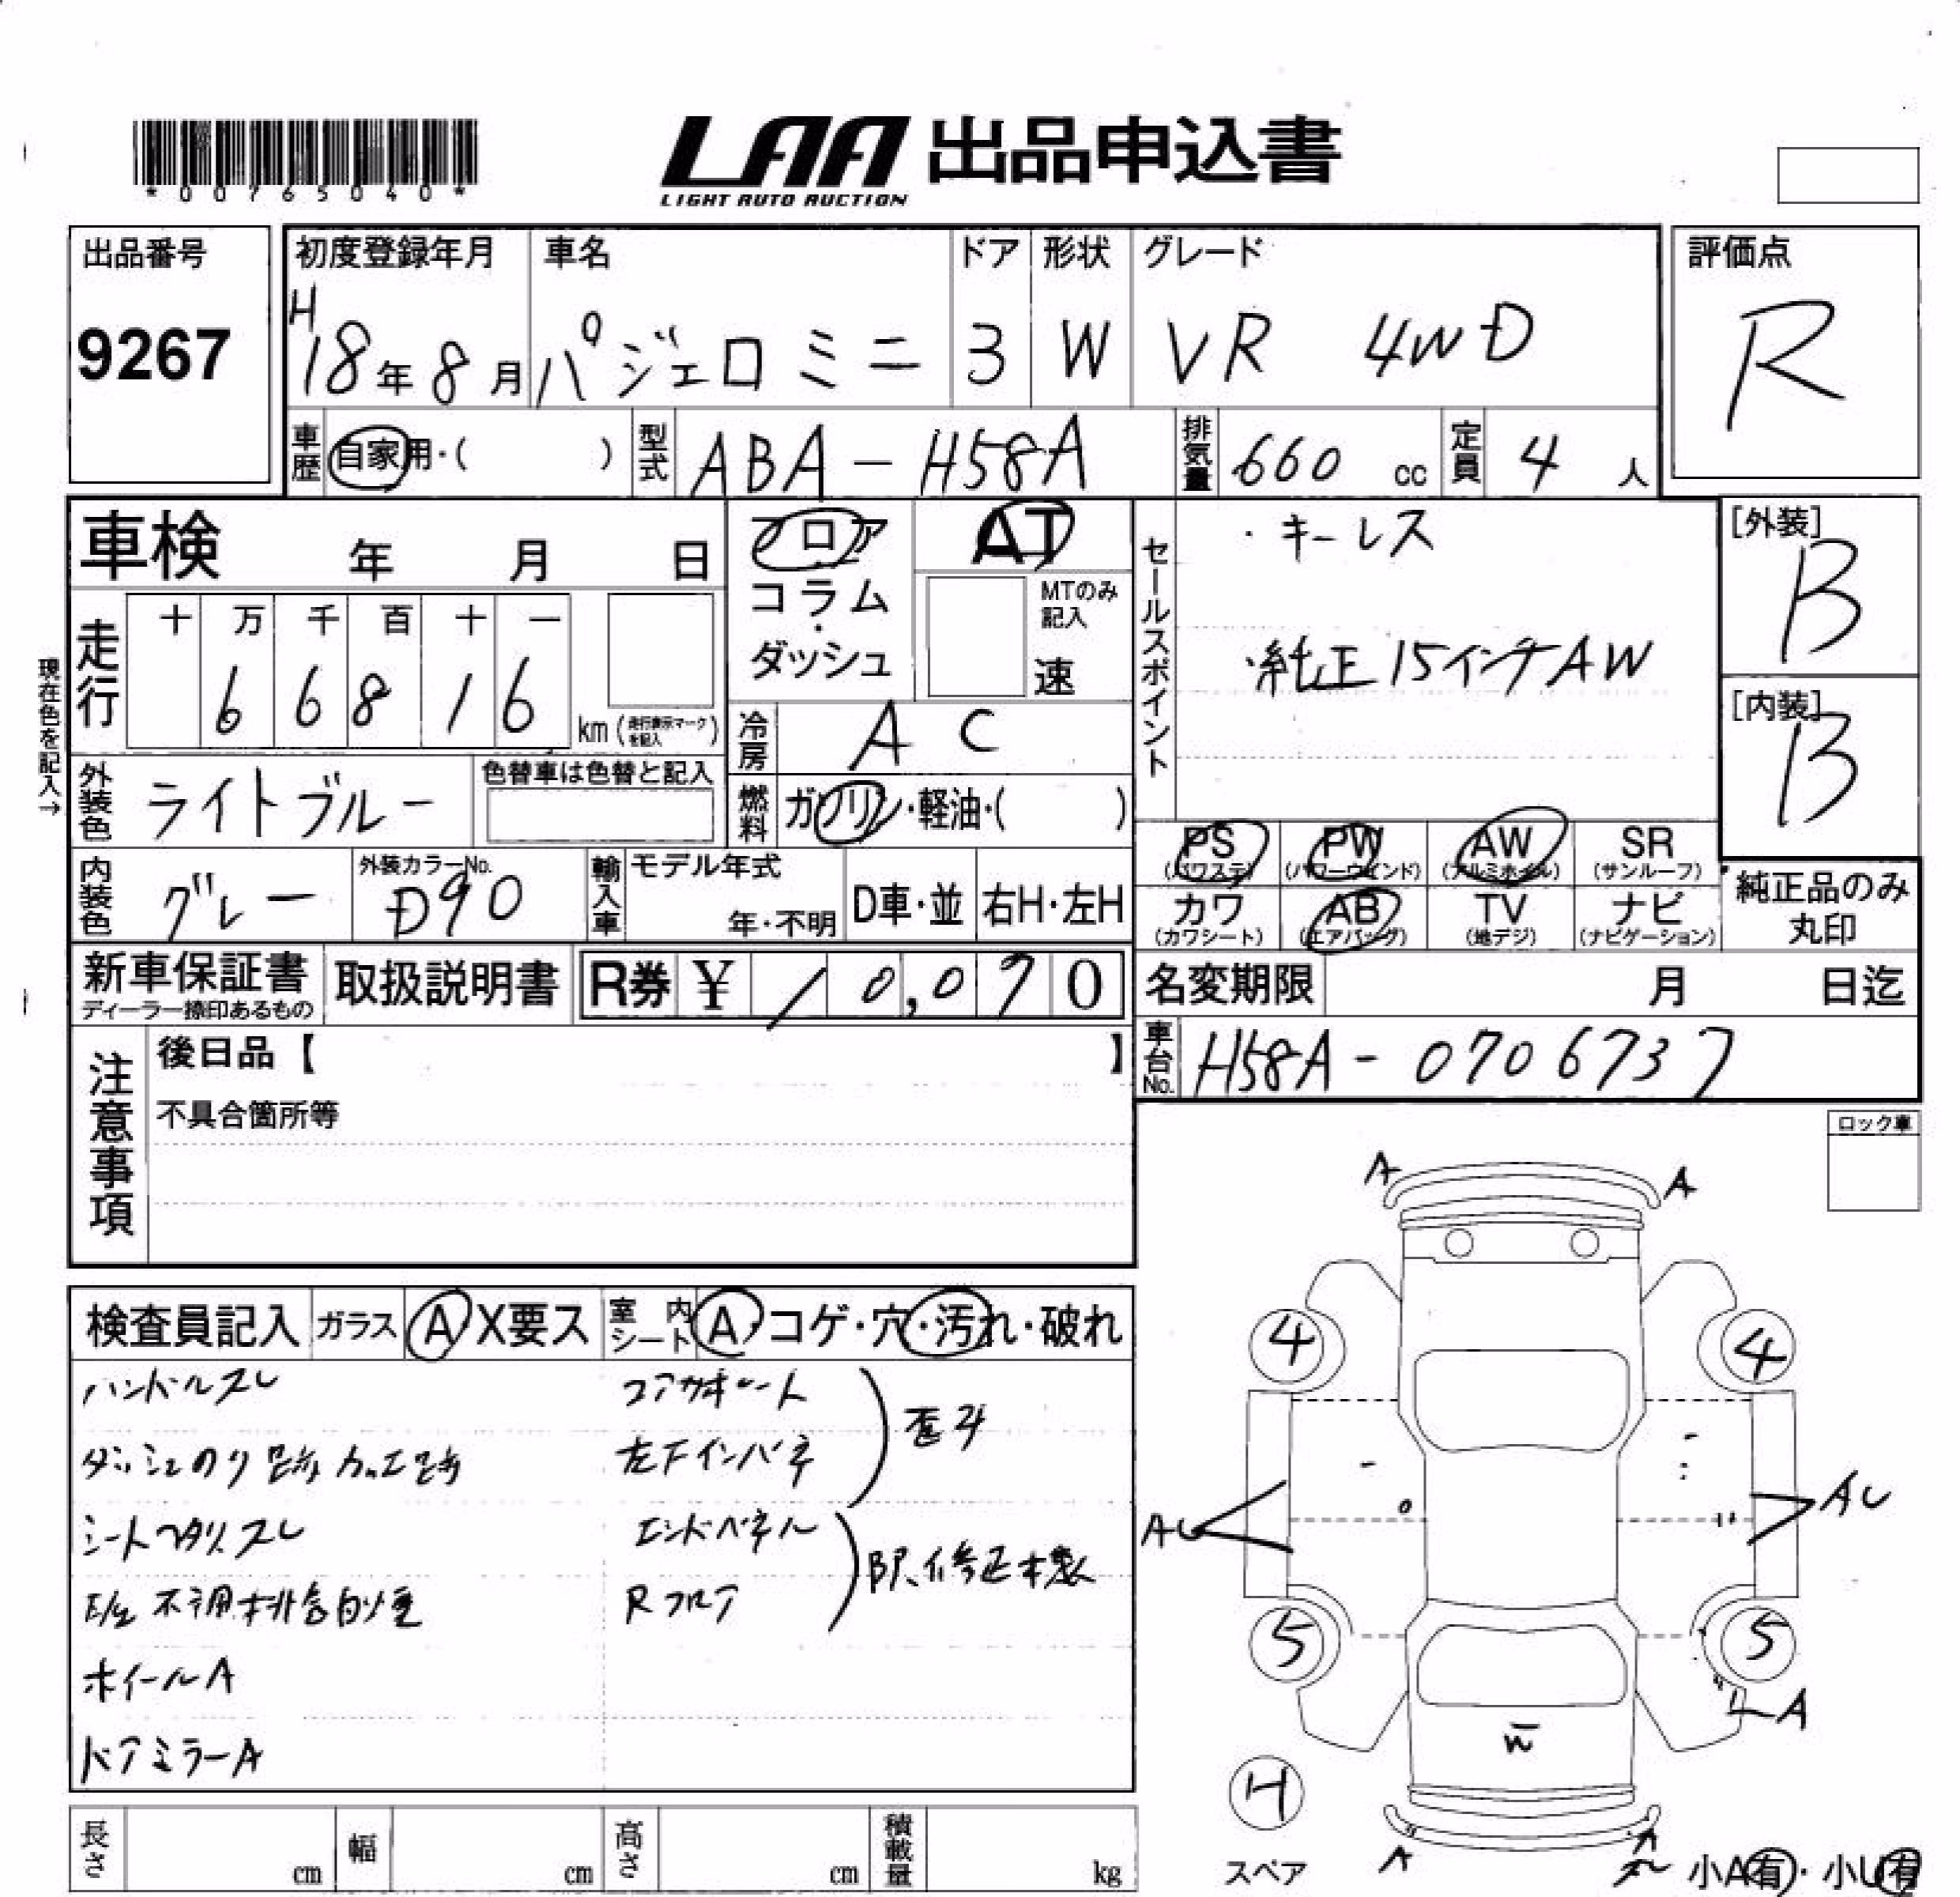 *00765040*
LAA 出品申込書
LIGHT AUTO AUCTION
出品番号
9267
初度登録年月 車名 ドア 形状 グレード 評価点
H18年8月 パジェロミニ 3 W VR 4WD R
車歴 自家用・( ) 型式 ABA-H58A 排気量 660 cc 定員 4 人
車検 年 月 日
フロア
コラム・
ダッシュ
AT
MTのみ記入
速
セールスポイント
・キーレス
・純正15インチAW
[外装]
B
[内装]
B
現在色を記入→
走行 十 万 千 百 十 一
6 6 8 1 6 km (走行表示マークを記入)
冷房 AC
外装色 ライトブルー 色替車は色替と記入
燃料 ガソリン・軽油・( )
PS (パワステ) PW (パワーウインド) AW (アルミホイル) SR (サンルーフ)
カワ (カワシート) AB (エアバッグ) TV (地デジ) ナビ (ナビゲーション)
純正品のみ丸印
内装色 グレー 外装カラーNo. D90 輸入車 モデル年式 年・不明 D車・並 右H・左H
新車保証書 ディーラー捺印あるもの 取扱説明書 R券 ¥10,070
名変期限 月 日迄
車台No. H58A-0706737
注意事項
後日品【 】
不具合箇所等
ロック車
検査員記入 ガラス A X要ス 室内シート A・コゲ・穴・汚れ・破れ
ハンドルスレ
コアサポート
左Fインパネ
歪み
シートヘタリスレ
エンドパネル
Rフロア
ホイールA
ドアミラーA
A A
4 4
AU AU
5 5
A
4
スペア
A A
小A有・小U有
長さ cm 幅 cm 高さ cm 積載量 kg